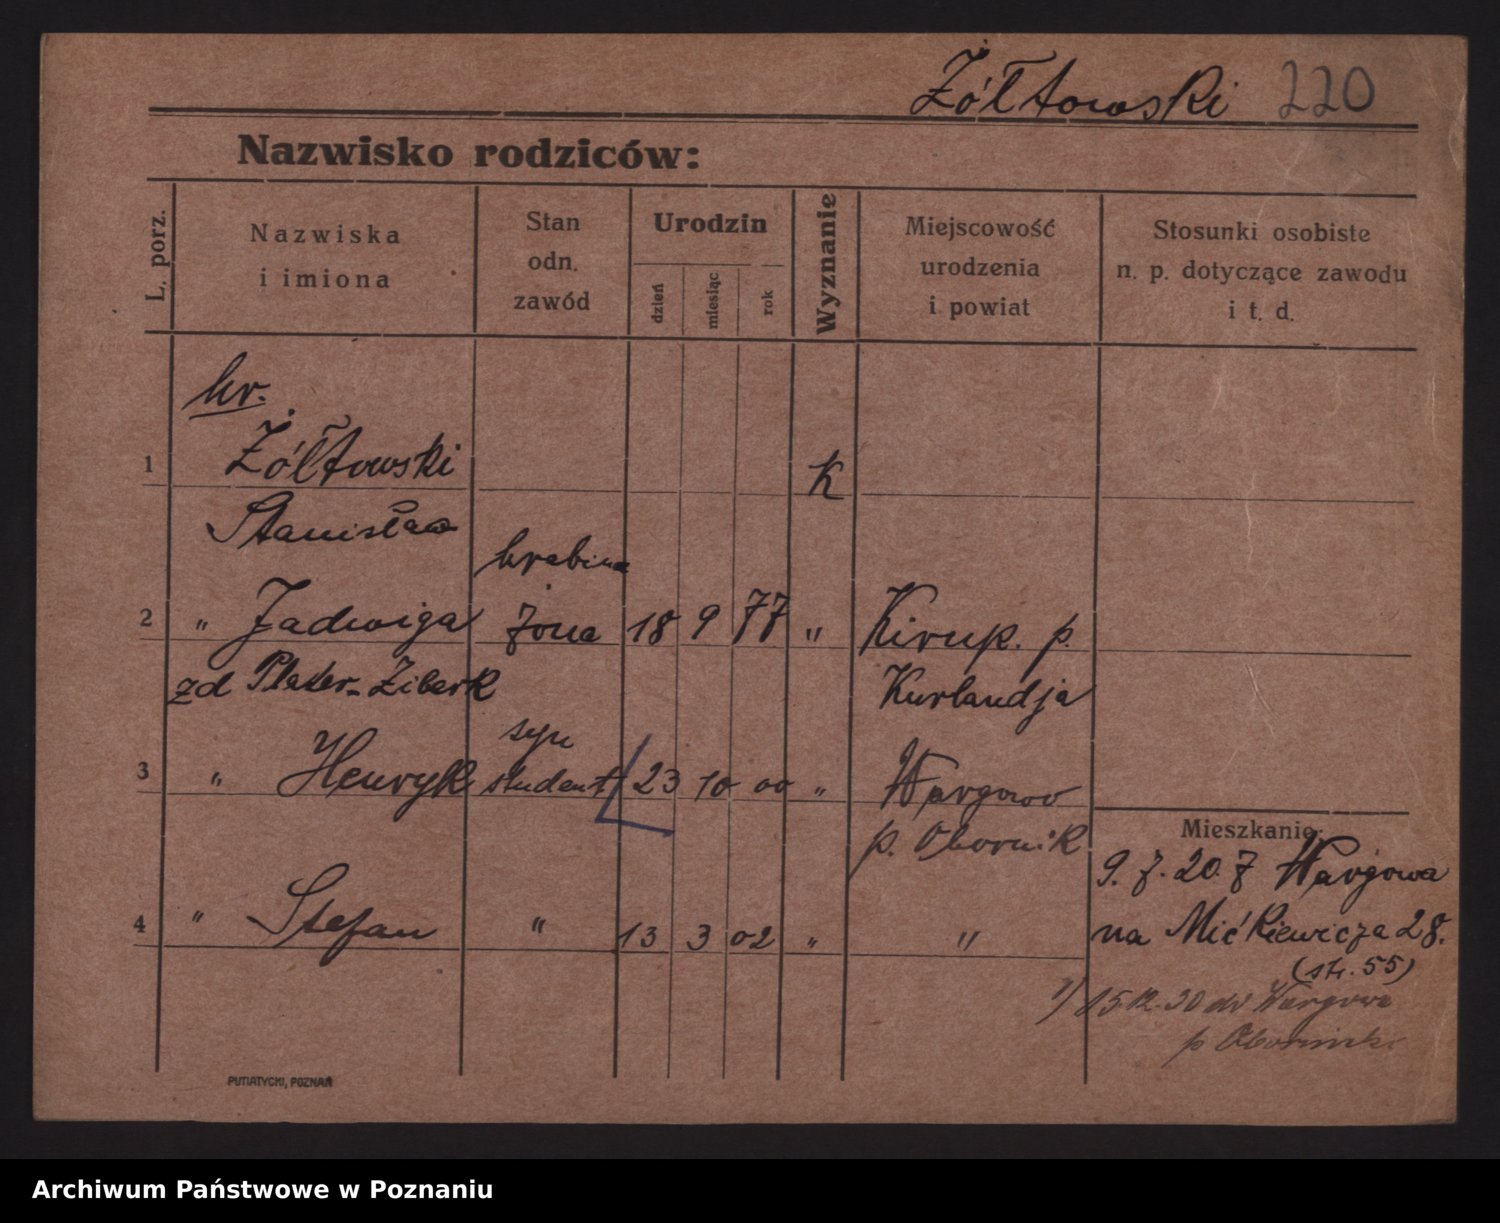 Żółtowski 220
Nazwisko rodziców:
L. porz.
Nazwiska
i imiona
Stan
odn.
zawód
Urodzin
dzień
miesiąc
rok
Wyznanie
Miejscowość
urodzenia
i powiat
Stosunki osobiste
n. p. dotyczące zawodu
i t. d.
hr.
1 Żółtowski K
Stanisław
hrabina
2 " Jadwiga żona 18 9 77 " Kirup. p.
zd Plater-Ziberk Kurlandja
syn
3 " Henryk student 23 10 00 " Wargowo
p. Obornik
Mieszkanie:
9. 7. 20. z Wargowa
4 " Stefan " 13 3 02 " "
na Mićkiewicza 28.
(str. 55)
15.12.30 do Wargowa
p Oborniki
PUTIATYCKI, POZNAŃ
Archiwum Państwowe w Poznaniu